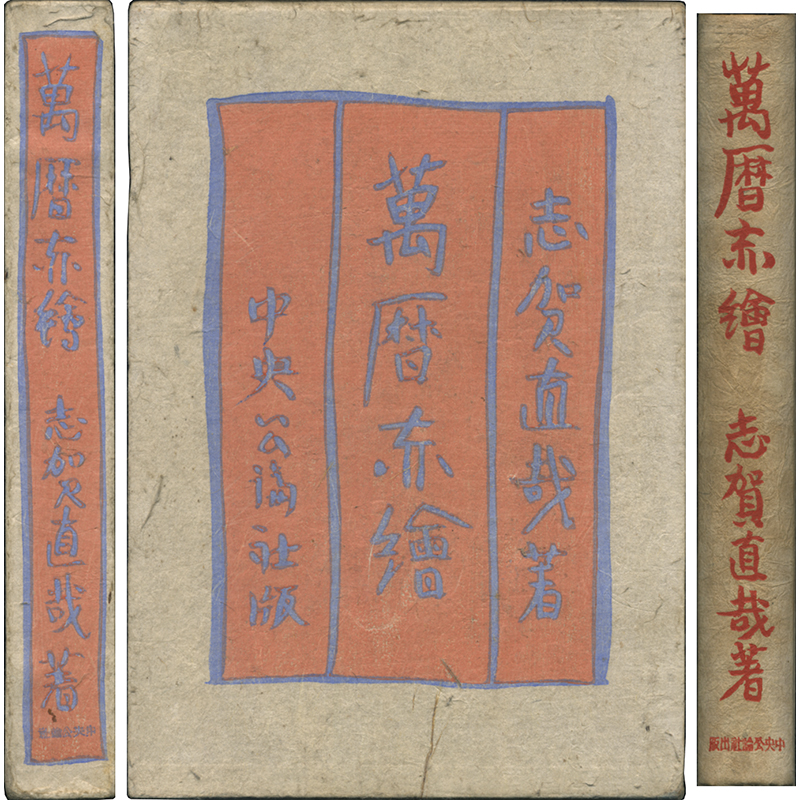 萬暦赤繪 志賀直哉著
中央公論社
志賀直哉著
萬暦赤繪
中央公論社版
萬暦赤繪 志賀直哉著
中央公論社出版